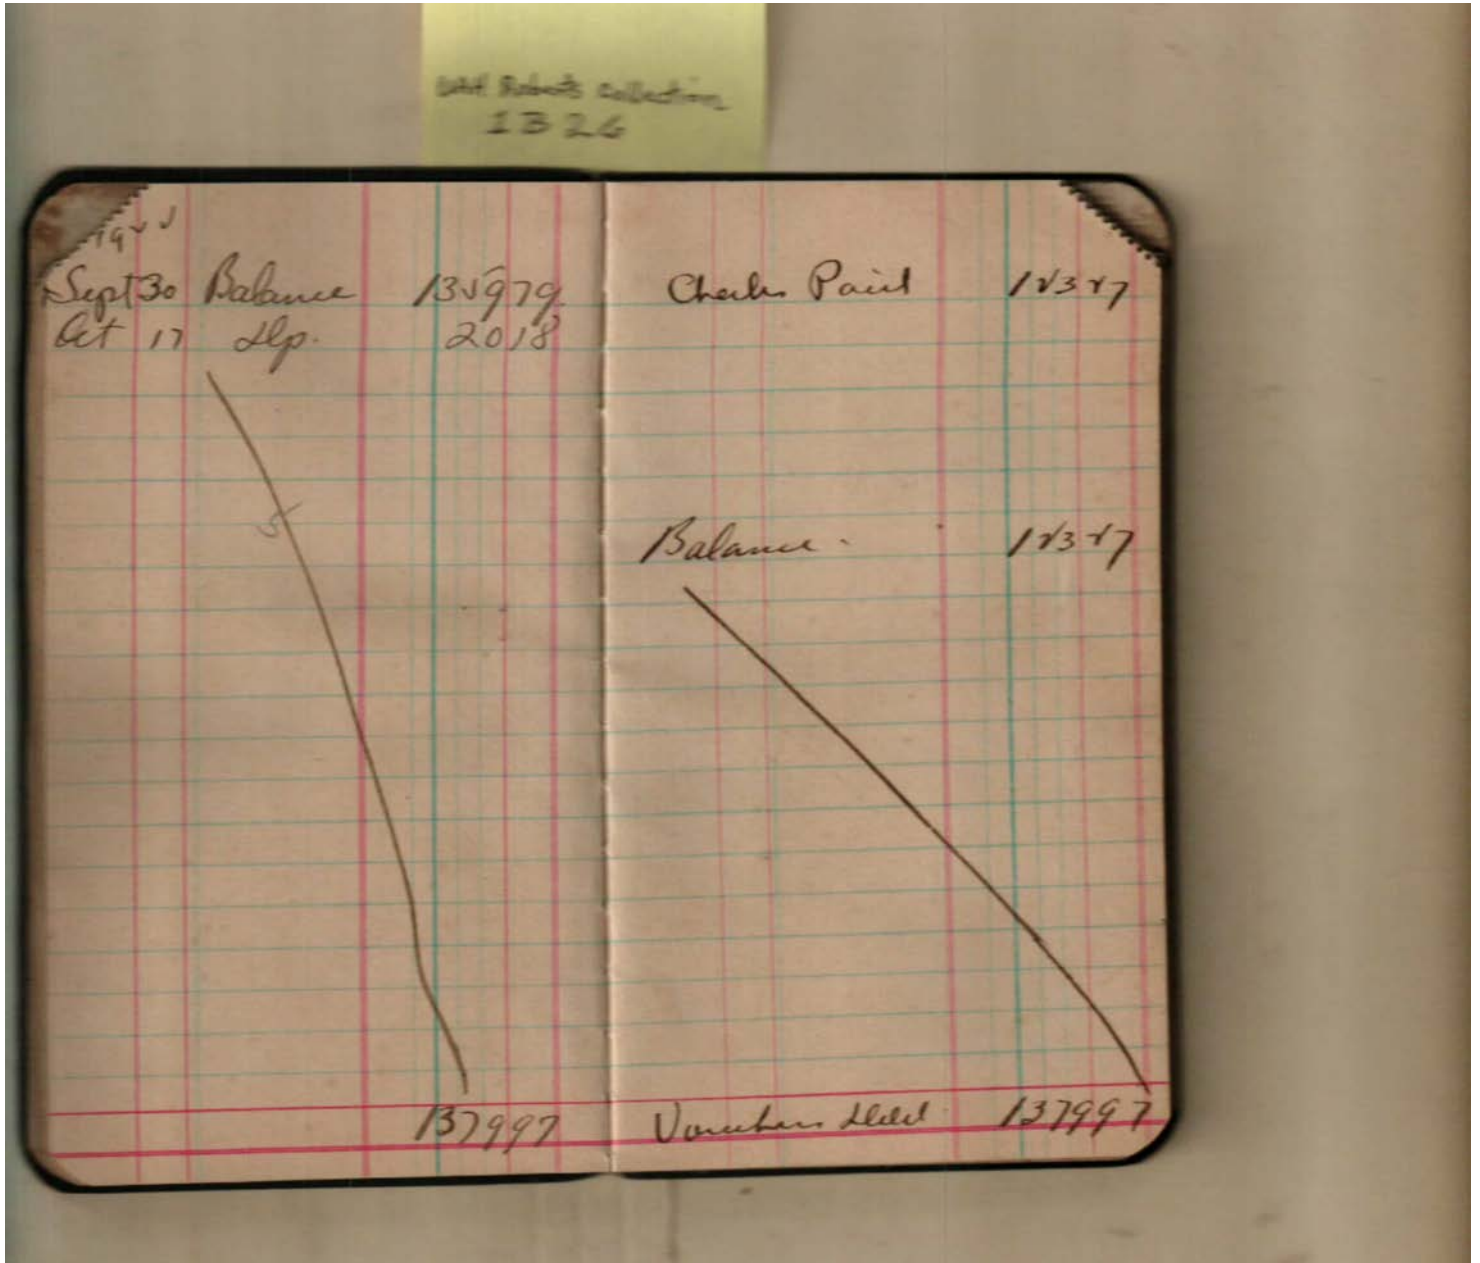 UAH Roberts Collection
1B26
1922
Sept 30 Balance 135979
Oct 17 Dep. 2018
137997
Checks Paid 12327
Balance. 12327
Vouchers Deld 137997